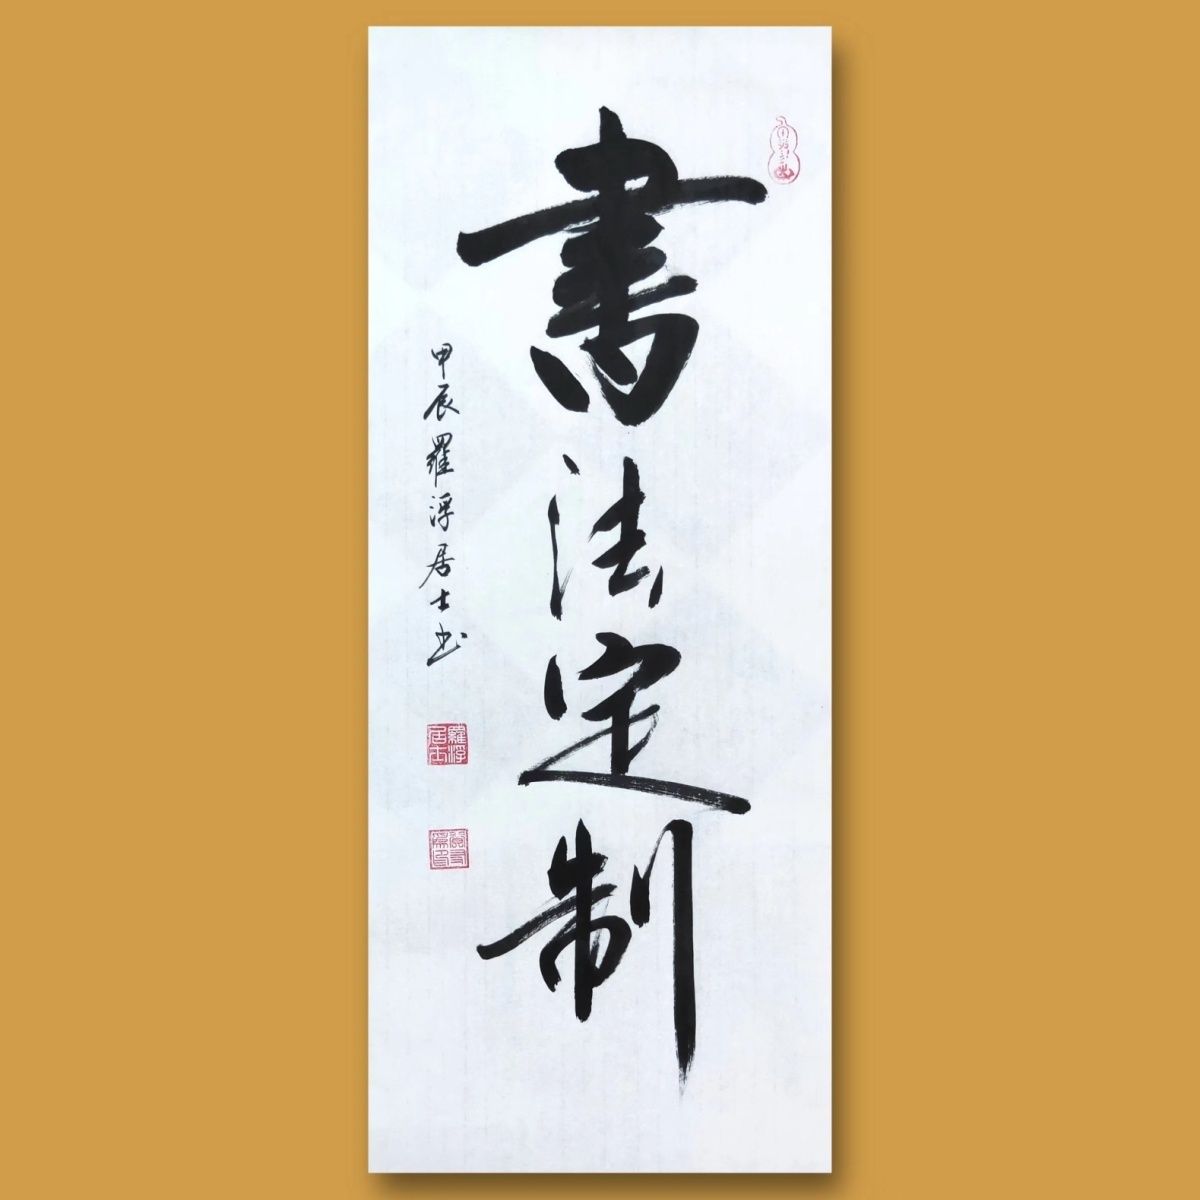 書法定制
甲辰羅浮居士书
羅浮居士